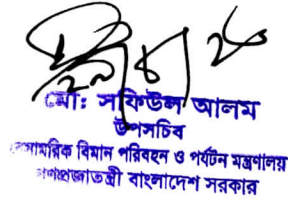 মো: সফিউল আলম
উপসচিব
বেসামরিক বিমান পরিবহন ও পর্যটন মন্ত্রণালয়
গণপ্রজাতন্ত্রী বাংলাদেশ সরকার